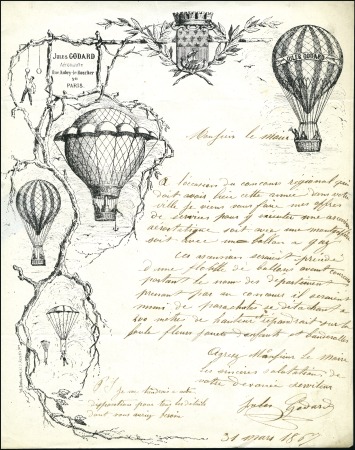 JULES GODARD
AÉRONAUTE
Rue Aubry-le-Boucher
30
PARIS.
JULES GODARD
Monsieur le maire
A l'occasion du concours regional qui
doit avoir lieu cette année dans votre
ville je viens vous faire mes offres
de services pour y executer une
aerostatique soit avec une
soit avec un ballon a gaz
Ces
d'une flotille de ballons
portant le nom des departement
prenant par au concours et seraient
muni de parachute se detachant a
200 metre de hauteur repandrait sur la
foule fleurs jouets d'enfants et
Agreez Monsieur le Maire
les sinceres salutation de
votre devoué serviteur
Jules Godard
P.S. je me tiendrai a votre
disposition pour tous les details
dont vous auriez besoin
31 mars 186